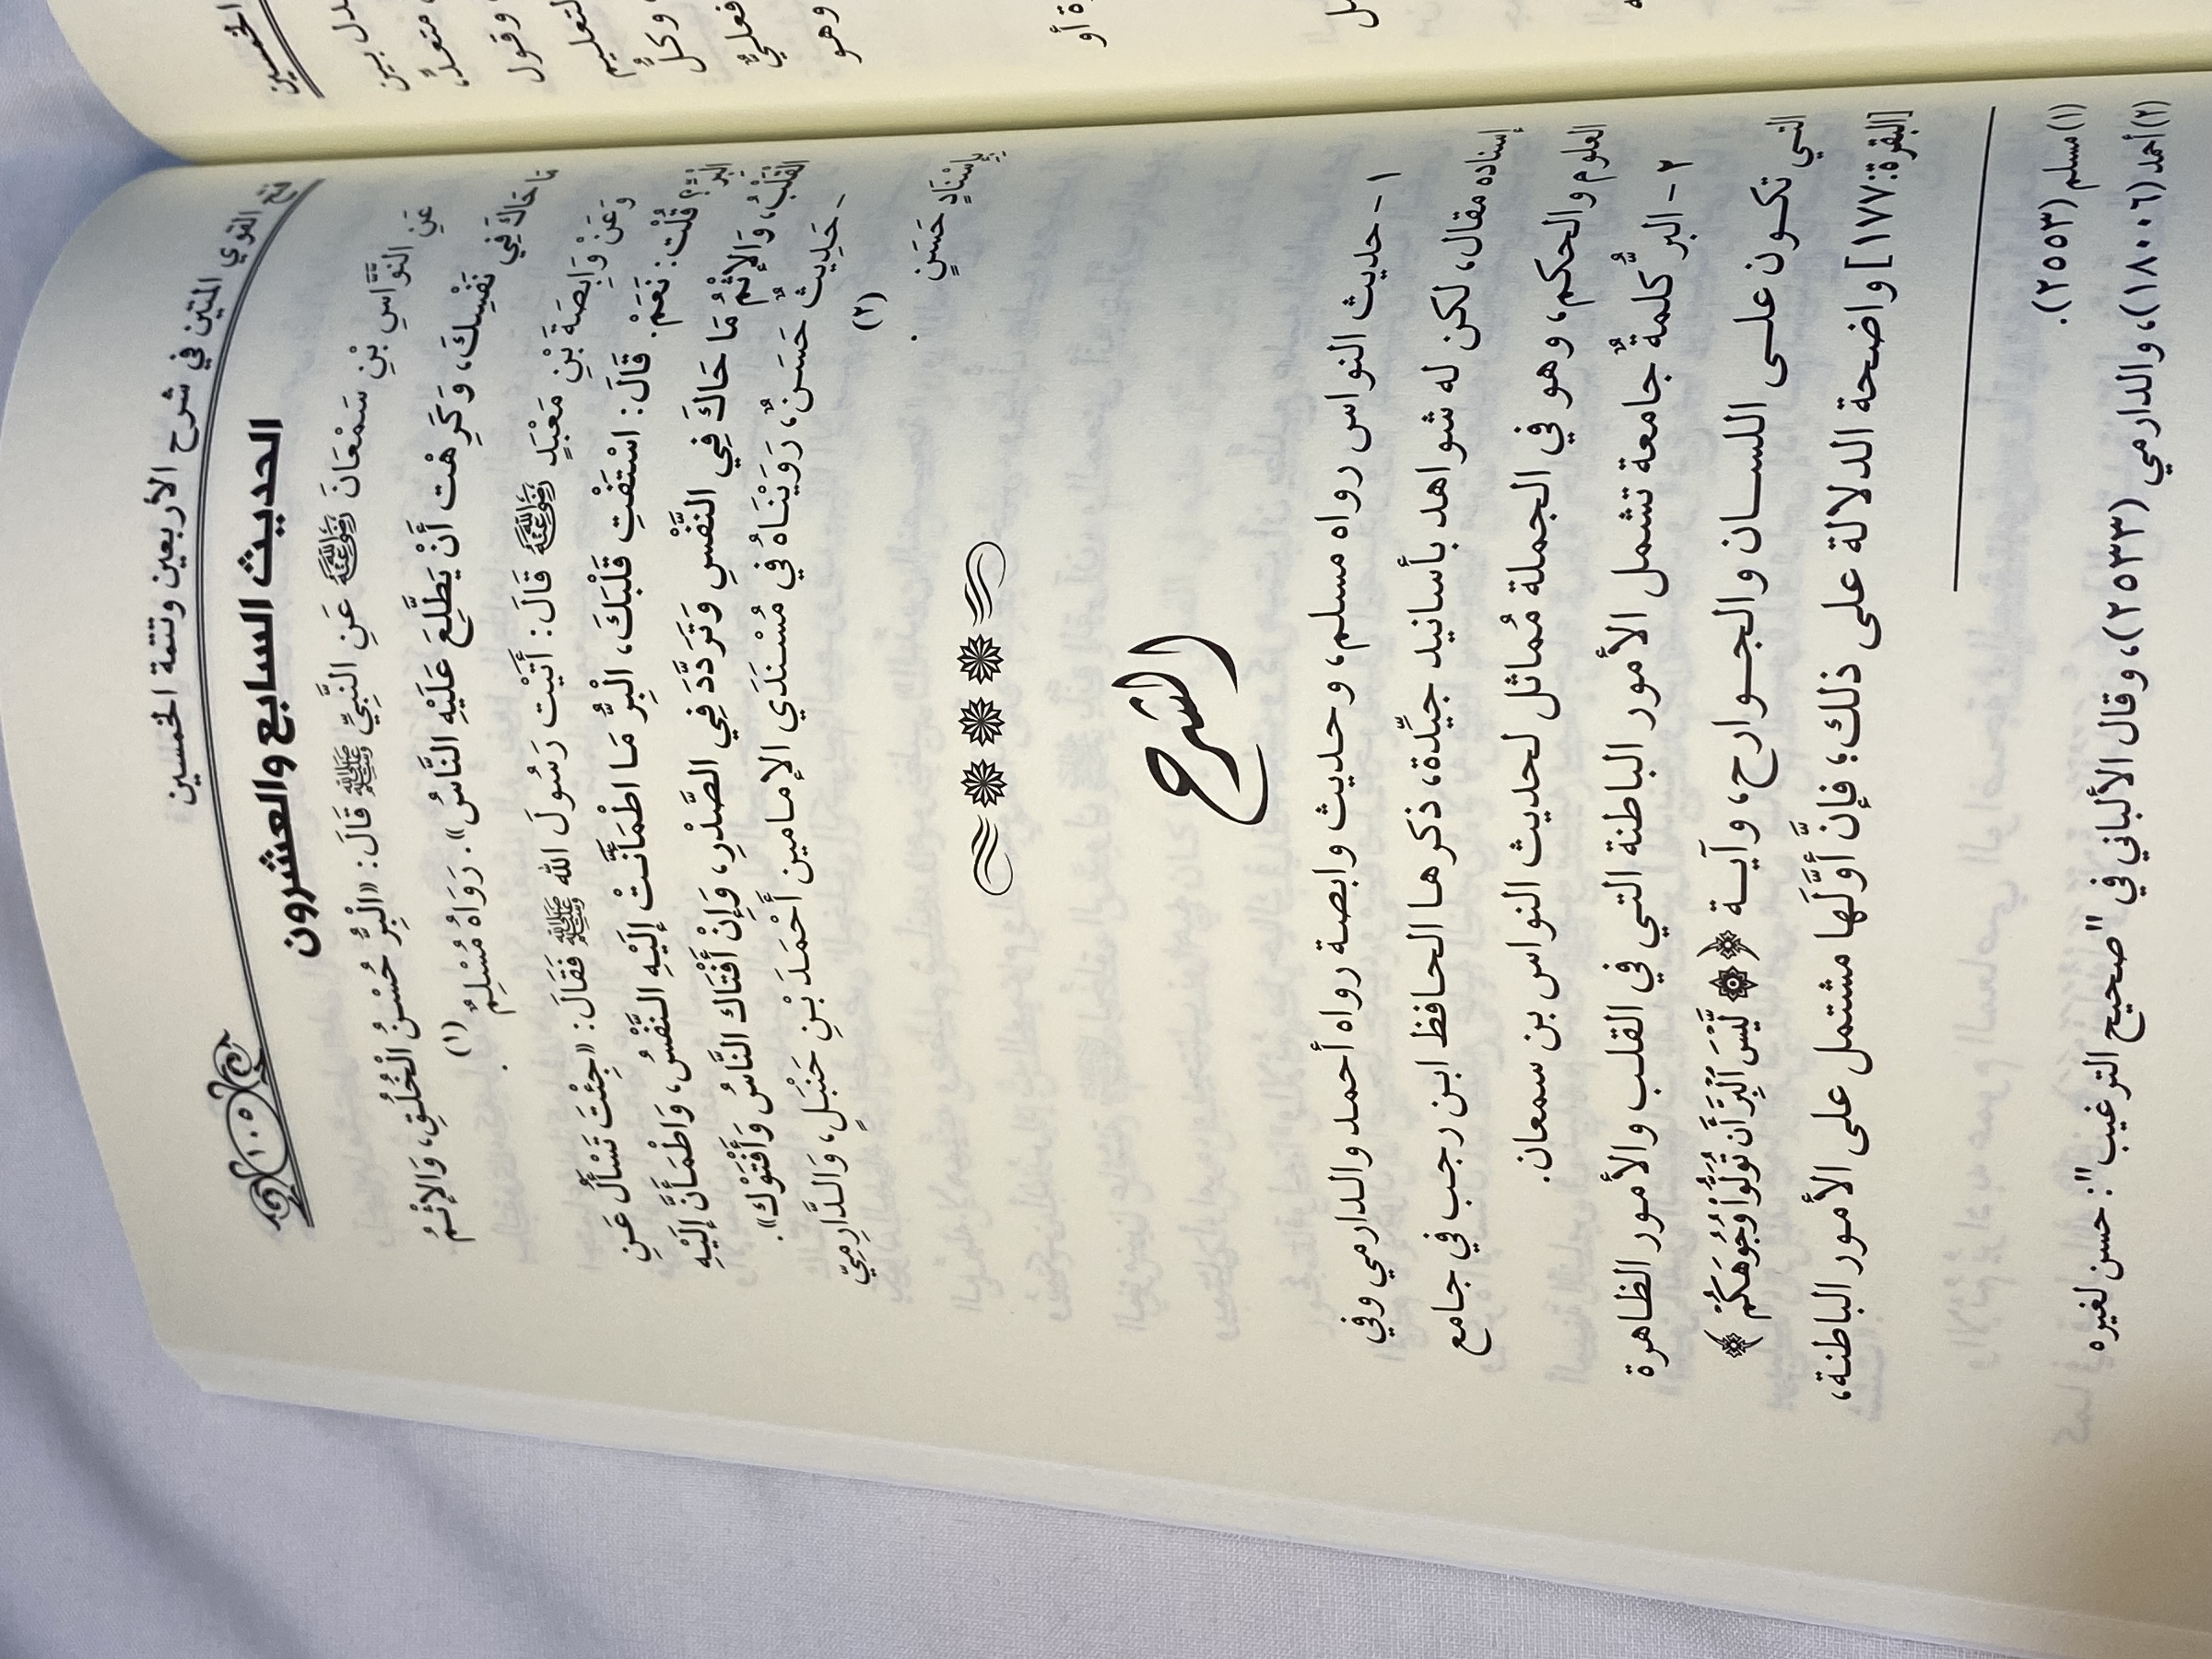 فتح القوي المتين في شرح الأربعين وتتمة الخمسين
١٠٥
الحديث السابع والعشرون
عَنِ النَّوَّاسِ بْنِ سَمْعَانَ رَضِيَ اللَّهُ عَنْهُ عَنِ النَّبِيِّ ﷺ قَالَ: «الْبِرُّ حُسْنُ الْخُلُقِ، وَالإِثْمُ
مَا حَاكَ فِي نَفْسِكَ، وَكَرِهْت أَنْ يَطَّلِعَ عَلَيْهِ النَّاسُ». رَوَاهُ مُسْلِمٌ (١).
وَعَنْ وَابِصَةَ بْنِ مَعْبَدٍ رَضِيَ اللَّهُ عَنْهُ قَالَ: أَتَيْت رَسُولَ الله ﷺ فَقَالَ: «جِئْتَ تَسْأَلُ عَنِ
الْبِرِّ؟ قُلْت: نَعَمْ. قَالَ: اسْتَفْتِ قَلْبَكَ، الْبِرُّ مَا اطْمَأَنَّتْ إلَيْهِ النَّفْسُ، وَاطْمَأَنَّ إلَيْهِ
الْقَلْبُ، وَالإِثْمُ مَا حَاكَ فِي النَّفْسِ وَتَرَدَّدَ فِي الصَّدْرِ، وَإِنْ أَفْتَاك النَّاسُ وَأَفْتَوْك».
- حَدِيثٌ حَسَنٌ، رَوَيْنَاهُ في مُسْنَدَي الإمامين أَحْمَدَ بْنِ حَنْبَلٍ، وَالدَّارِمِيّ
بِإِسْنَادٍ حَسَنٍ (٢).
الشرح
١- حديث النواس رواه مسلم، وحديث وابصة رواه أحمد والدارمي وفي
إسناده مقال، لكن له شواهد بأسانيد جيِّدة، ذكرها الحافظ ابن رجب في جامع
العلوم والحكم، وهو في الجملة مُماثل لحديث النواس بن سمعان.
٢- البرُّ كلمةٌ جامعة تشمل الأمور الباطنة التي في القلب والأمور الظاهرة
التي تكون على اللسان والجوارح، وآية ﴿۞ لَّيْسَ ٱلْبِرَّ أَن تُوَلُّوا۟ وُجُوهَكُمْ﴾
[البقرة:١٧٧] واضحة الدلالة على ذلك؛ فإنَّ أوَّلَها مشتمل على الأمور الباطنة،
(١) مسلم (٢٥٥٣).
(٢) أحمد (١٨٠٠٦)، والدارمي (٢٥٣٣)، وقال الألباني في "صحيح الترغيب": حسن لغيره